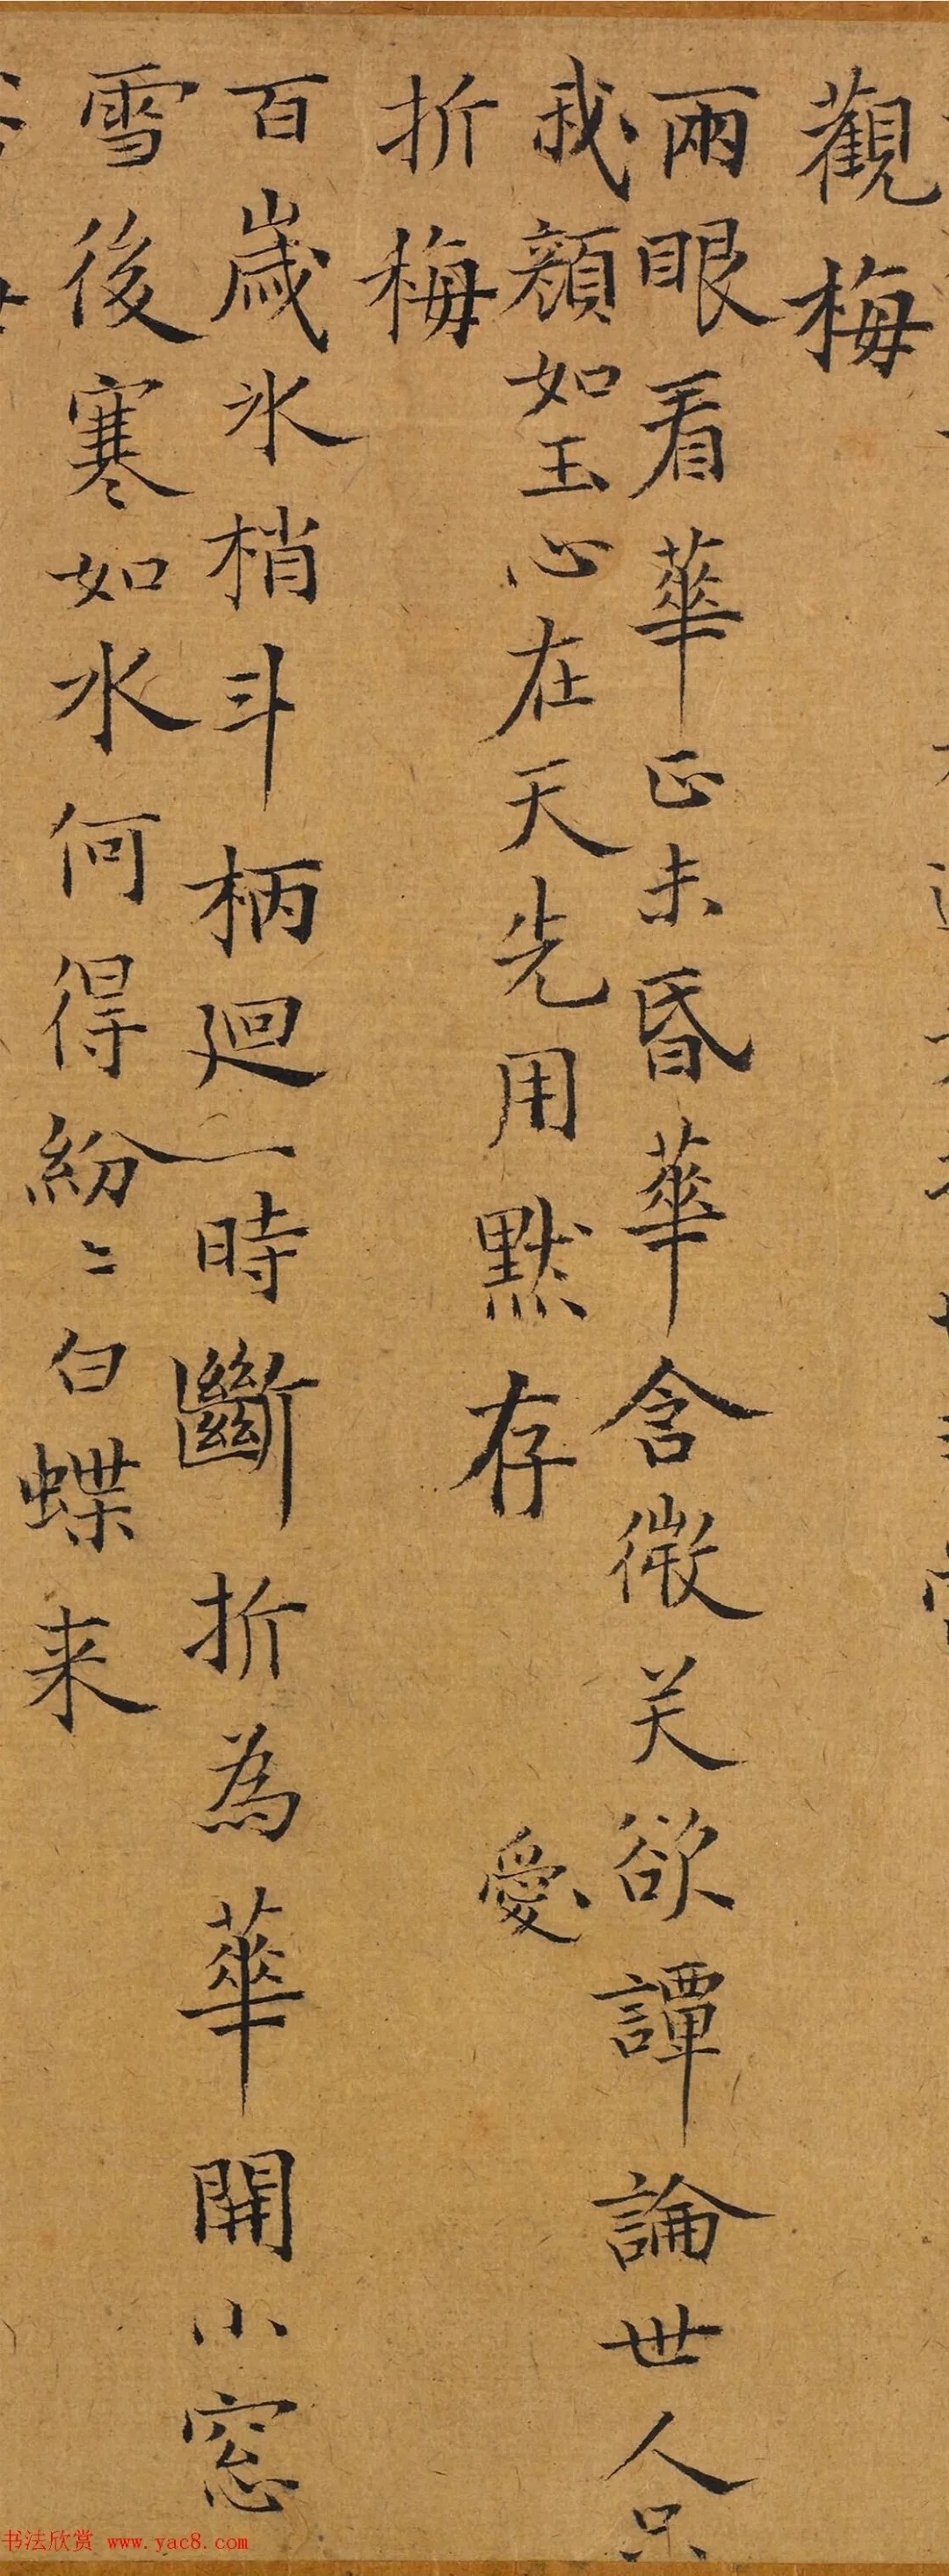 觀梅
兩眼看華正未昏華含微笑欲譚論世人只
我顏如玉心在天先用默存
愛
折梅
百歲氷梢斗柄迴一時斷折為華開小窓
雪後寒如水何得紛〻白蝶来
书法欣赏 www.yac8.com